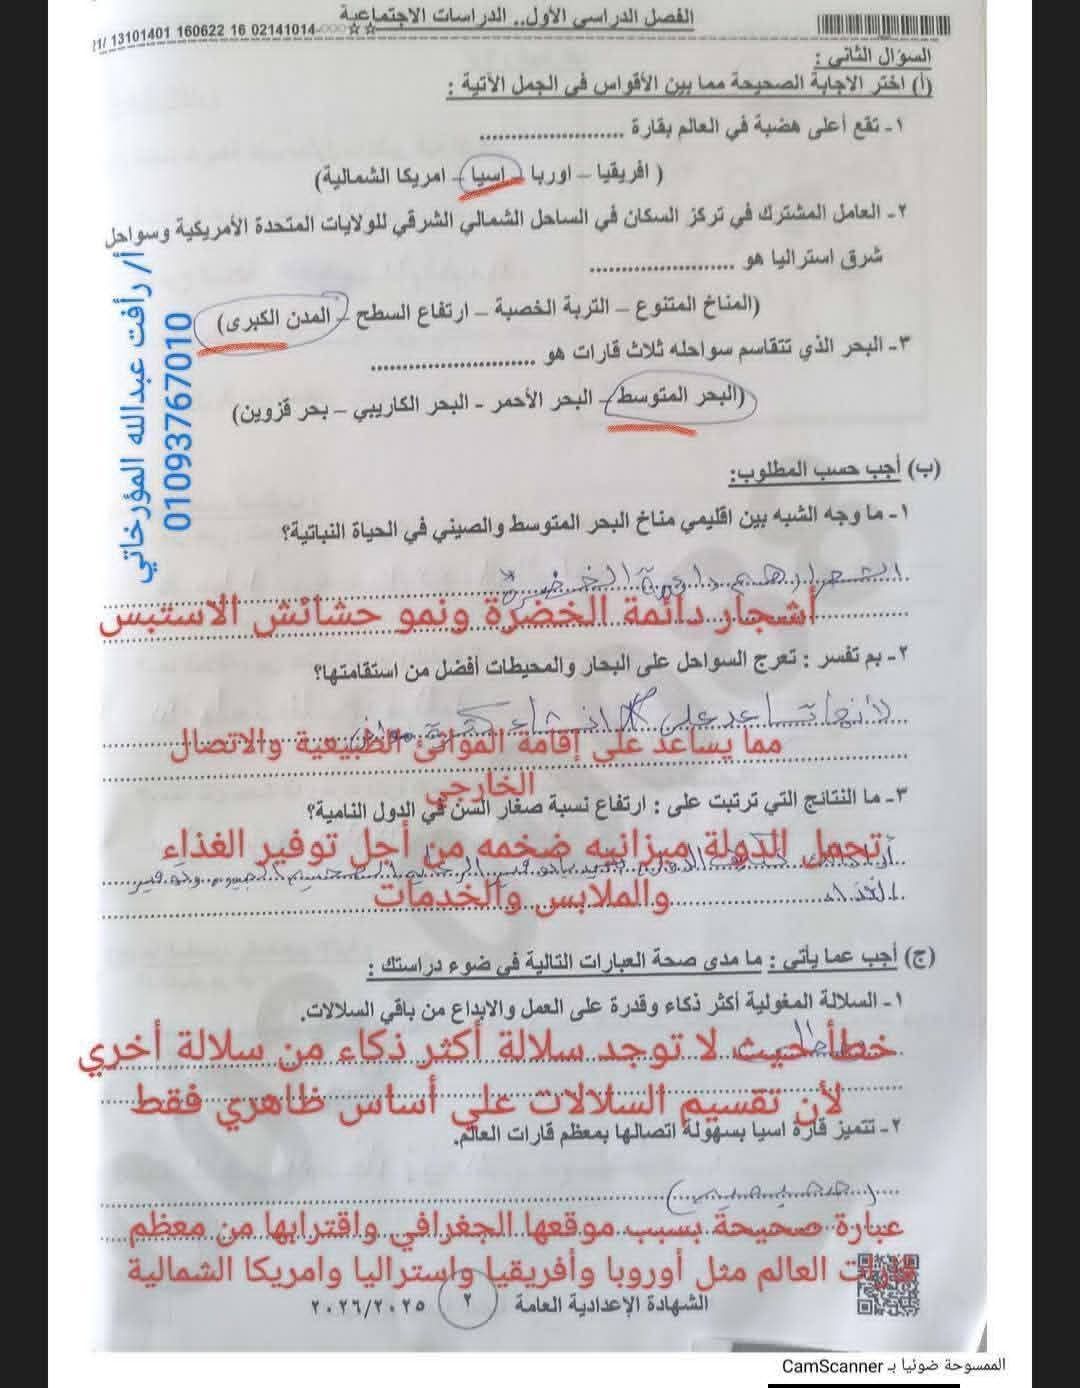 الفصل الدراسي الأول.. الدراسات الاجتماعية
21/ 13101401 160622 16 02141014-○○○☆☆
السؤال الثاني :
(أ) اختر الاجابة الصحيحة مما بين الأقواس في الجمل الآتية :
١- تقع أعلى هضبة في العالم بقارة ......................
( افريقيا – اوربا – اسيا – امريكا الشمالية)
٢- العامل المشترك في تركز السكان في الساحل الشمالي الشرقي للولايات المتحدة الأمريكية وسواحل
شرق استراليا هو ......................
(المناخ المتنوع – التربة الخصبة – ارتفاع السطح – المدن الكبرى)
٣- البحر الذي تتقاسم سواحله ثلاث قارات هو ......................
(البحر المتوسط – البحر الأحمر - البحر الكاريبي – بحر قزوين)
أ/ رأفت عبدالله المؤرخاتي
01093767010
(ب) أجب حسب المطلوب:
١- ما وجه الشبه بين اقليمي مناخ البحر المتوسط والصيني في الحياة النباتية؟
أشجار دائمة الخضرة ونمو حشائش الاستبس
٢- بم تفسر : تعرج السواحل على البحار والمحيطات أفضل من استقامتها؟
لأنها تساعد على إنشاء
مما يساعد على إقامة الموانئ الطبيعية والاتصال
الخارجي
٣- ما النتائج التي ترتبت على : ارتفاع نسبة صغار السن في الدول النامية؟
تحمل الدولة ميزانيه ضخمه من أجل توفير الغذاء
والملابس والخدمات
الغذاء
(ج) أجب عما يأتي : ما مدى صحة العبارات التالية في ضوء دراستك :
١- السلالة المغولية أكثر ذكاء وقدرة على العمل والابداع من باقي السلالات.
خطأ حيث لا توجد سلالة أكثر ذكاء من سلالة أخري
لأن تقسيم السلالات علي أساس ظاهري فقط
٢- تتميز قارة اسيا بسهولة اتصالها بمعظم قارات العالم.
عبارة صحيحة بسبب موقعها الجغرافي واقترابها من معظم
قارات العالم مثل أوروبا وأفريقيا واستراليا وامريكا الشمالية
الشهادة الإعدادية العامة ٢ ٢٠٢٦/٢٠٢٥
الممسوحة ضوئيا بـ CamScanner